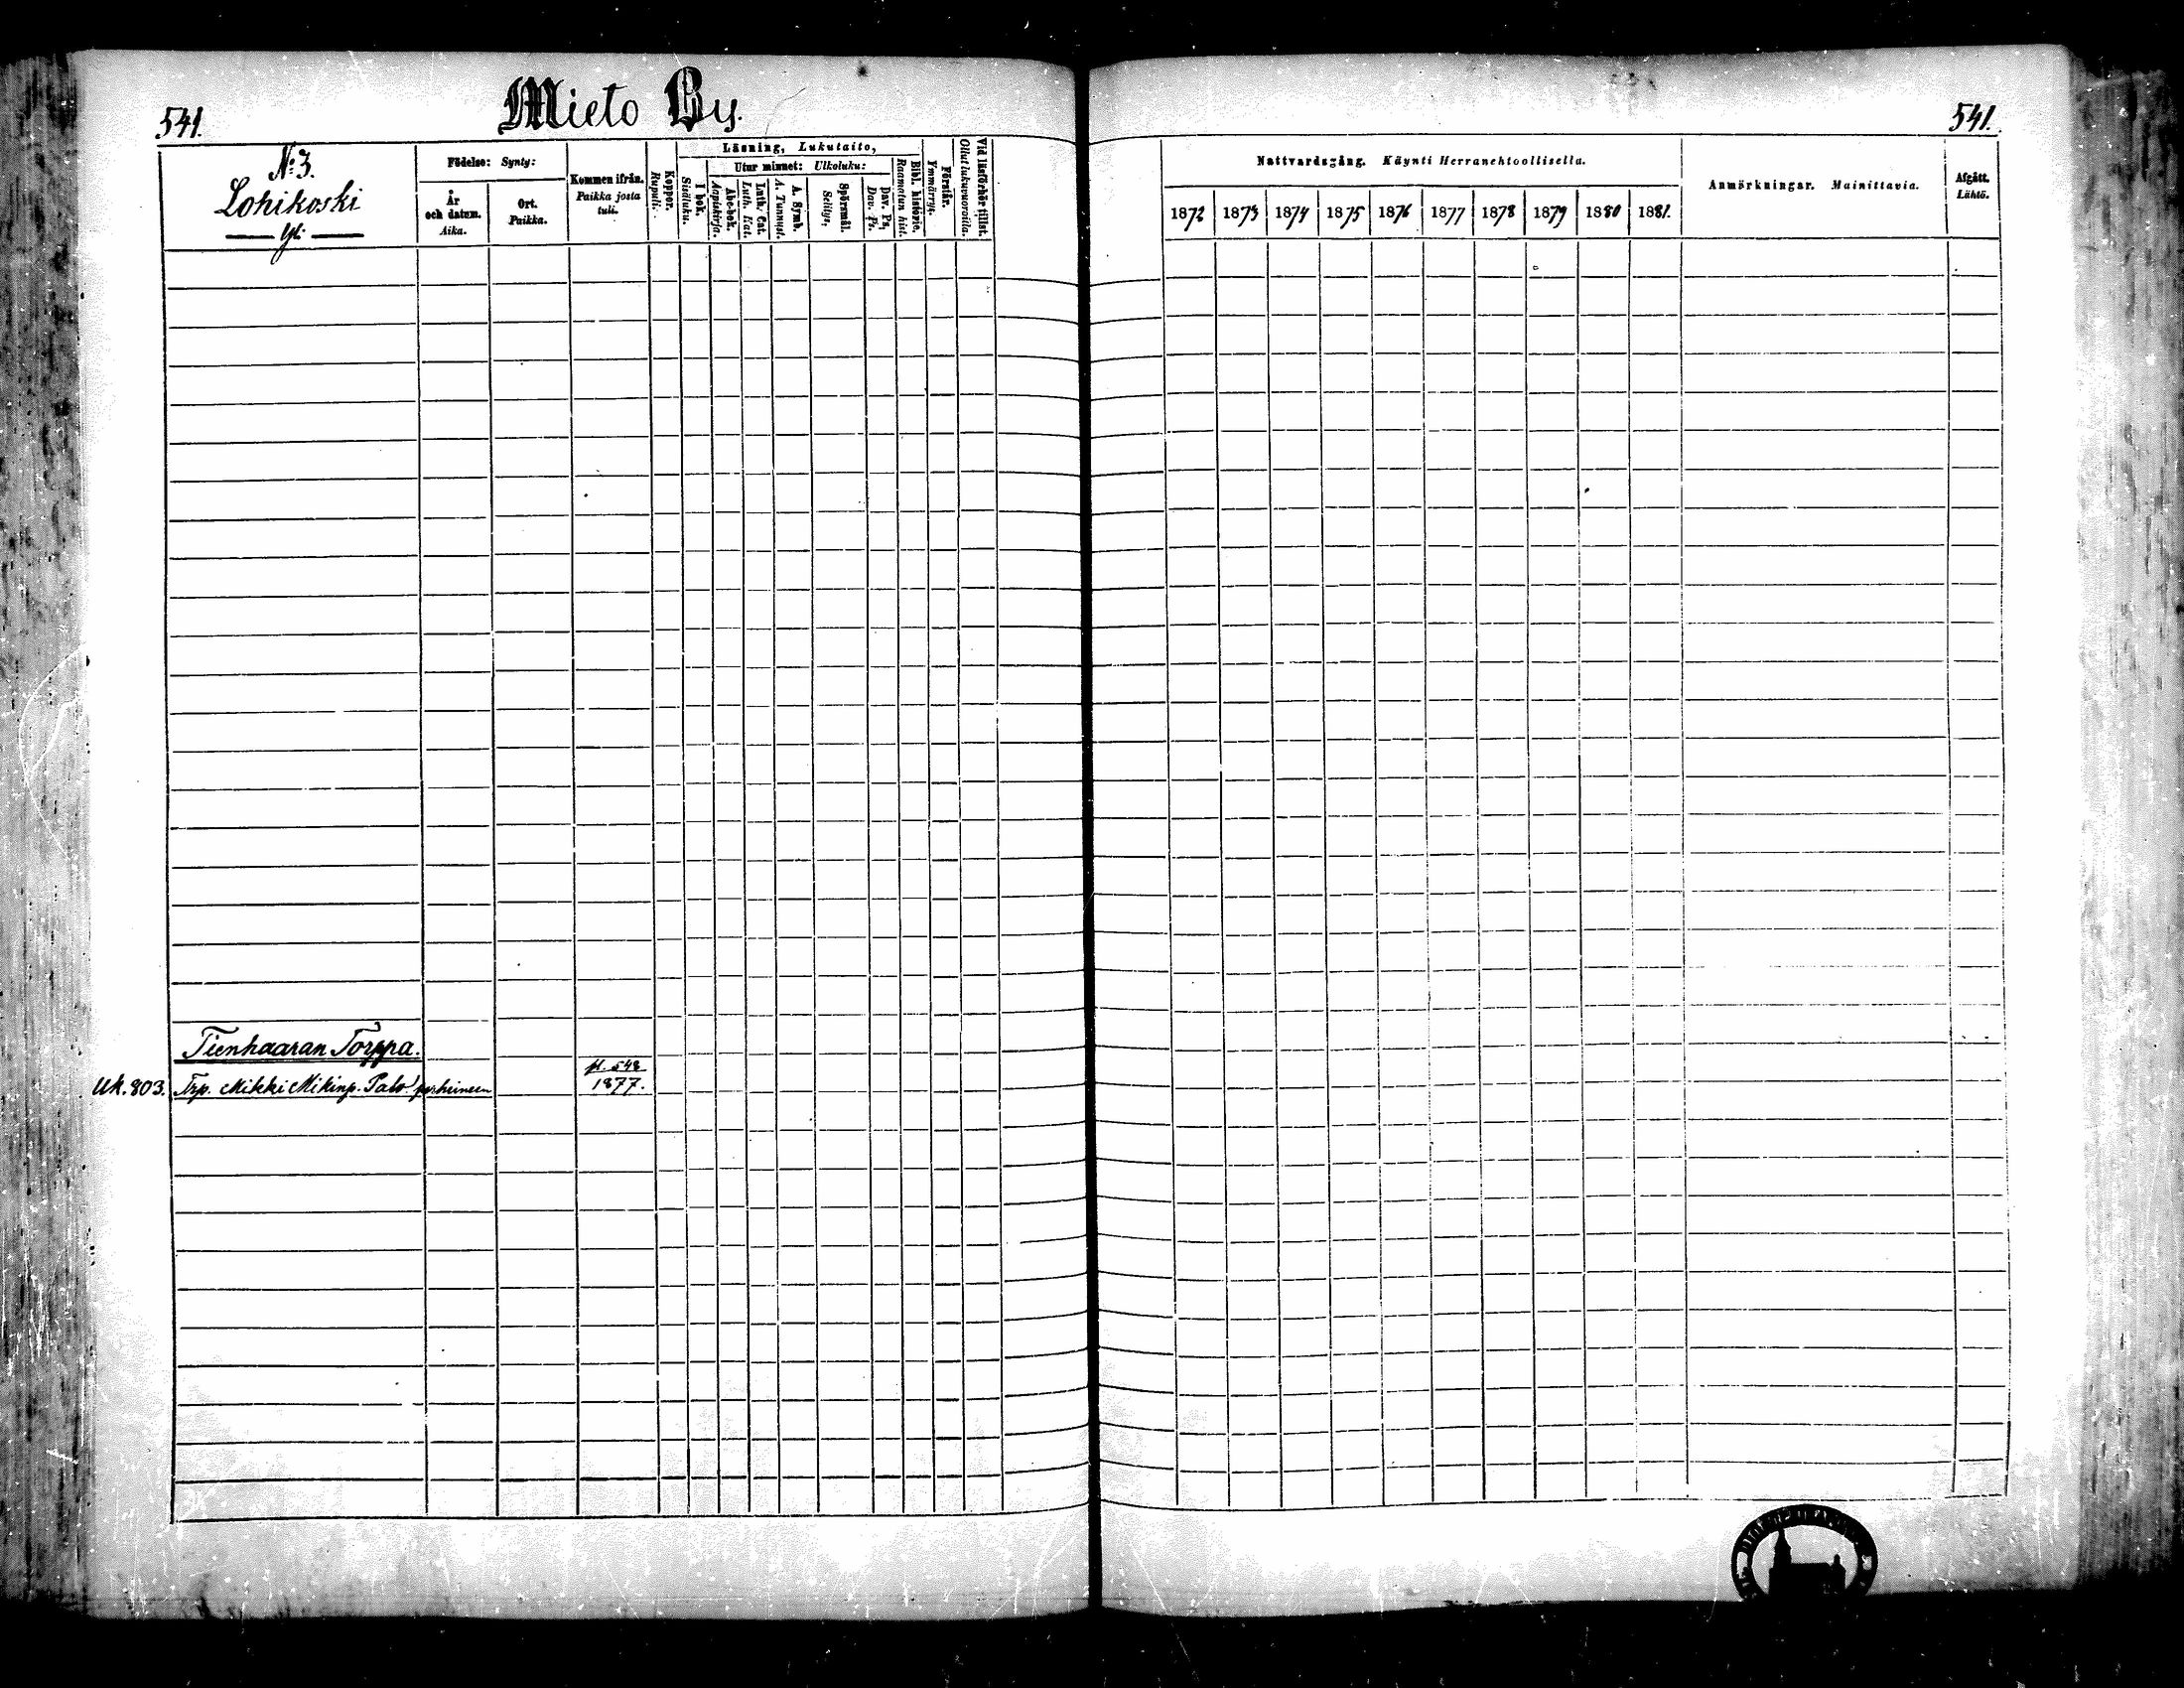 541.
Mieto By.
541.
No 3.
Lohikoski
Födelse: Synty:
År och datum. Aika.
Ort. Paikka.
Kommen ifrån. Paikka josta tuli.
Koppor. Rupuli.
Läsning, Lukutaito,
I bok. Sisäluku.
Utur minnet: Ulkoluku:
Abc-bok. Aapiskirja.
Luth. Cat. Luth. Kat.
A. Symb. A. Tunnust.
Spörsmål. Selitys.
Dav. Ps. Dav. Ps.
Bibl. historie. Raamatun hist.
Förstår. Ymmärrys.
Vid läsförhör tillst. Ollut lukuvuoroilla.
Nattvardsgång. Käynti Herranehtoollisella.
1872 1873 1874 1875 1876 1877 1878 1879 1880 1881.
Anmörkningar. Mainittavia.
Afgått. Lähtö.
Tienhaaran Torppa.
Uk. 803. Trp. Mikki Mikinp. Palo perheineen
p. 548
1877.